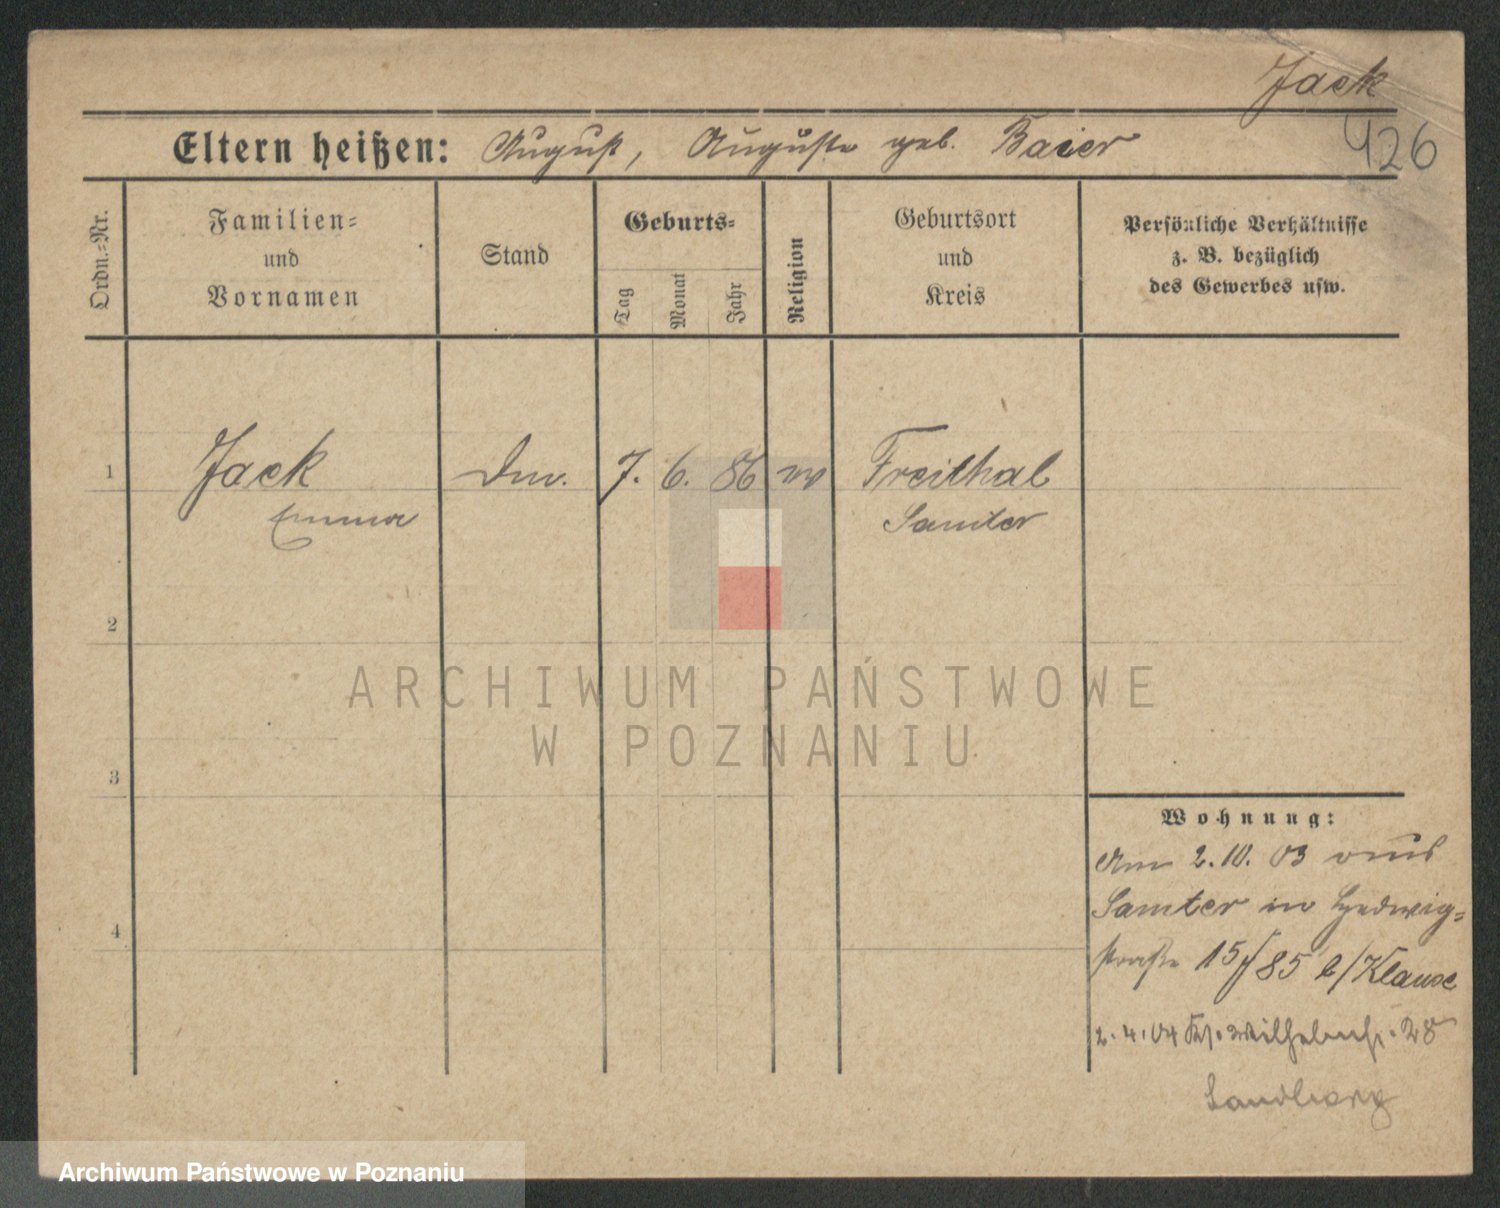 Jack
426
Eltern heißen: August, Auguste geb. Baier
Ordn.=Nr.
Familien=
und
Vornamen
Stand
Geburts=
Tag
Monat
Jahr
Religion
Geburtsort
und
Kreis
Persönliche Verhältnisse
z. B. bezüglich
des Gewerbes usw.
1 Jack 7. 6. 86 Freithal
Emma Samter
2
ARCHIWUM PAŃSTWOWE
W POZNANIU
3
Wohnung:
Am 2.10.03 aus
Samter in Hedwig=
straße 15 / 85 b/Klause
4
2.4.04 28
Archiwum Państwowe w Poznaniu